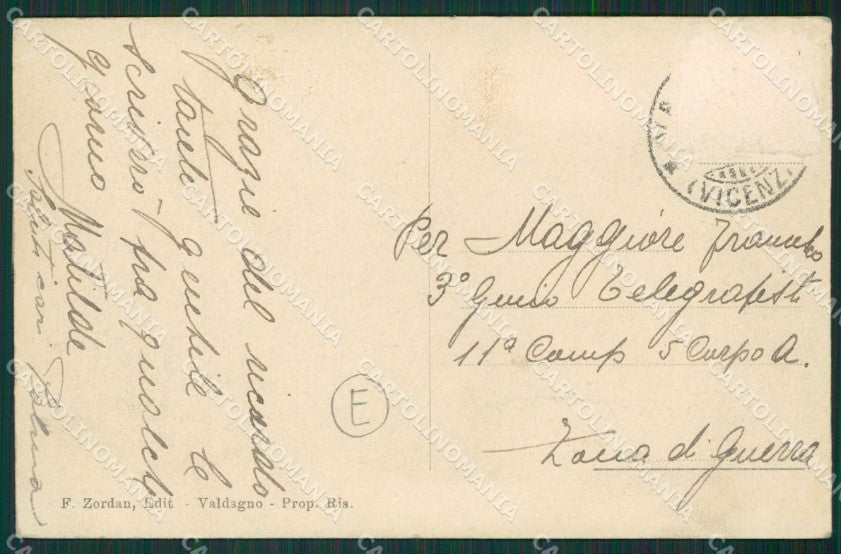 Grazie del ricordo
tanto gentile le
scriverò fra qualche
giorno Matilde
Saluti cari Palma
VA
(VICENZ
Per Maggiore
3º Genio Telegrafisti
11ª Comp 5 Corpo A.
Zona di Guerra
E
F. Zordan, Edit - Valdagno - Prop. Ris.
CARTOLINOMANIA